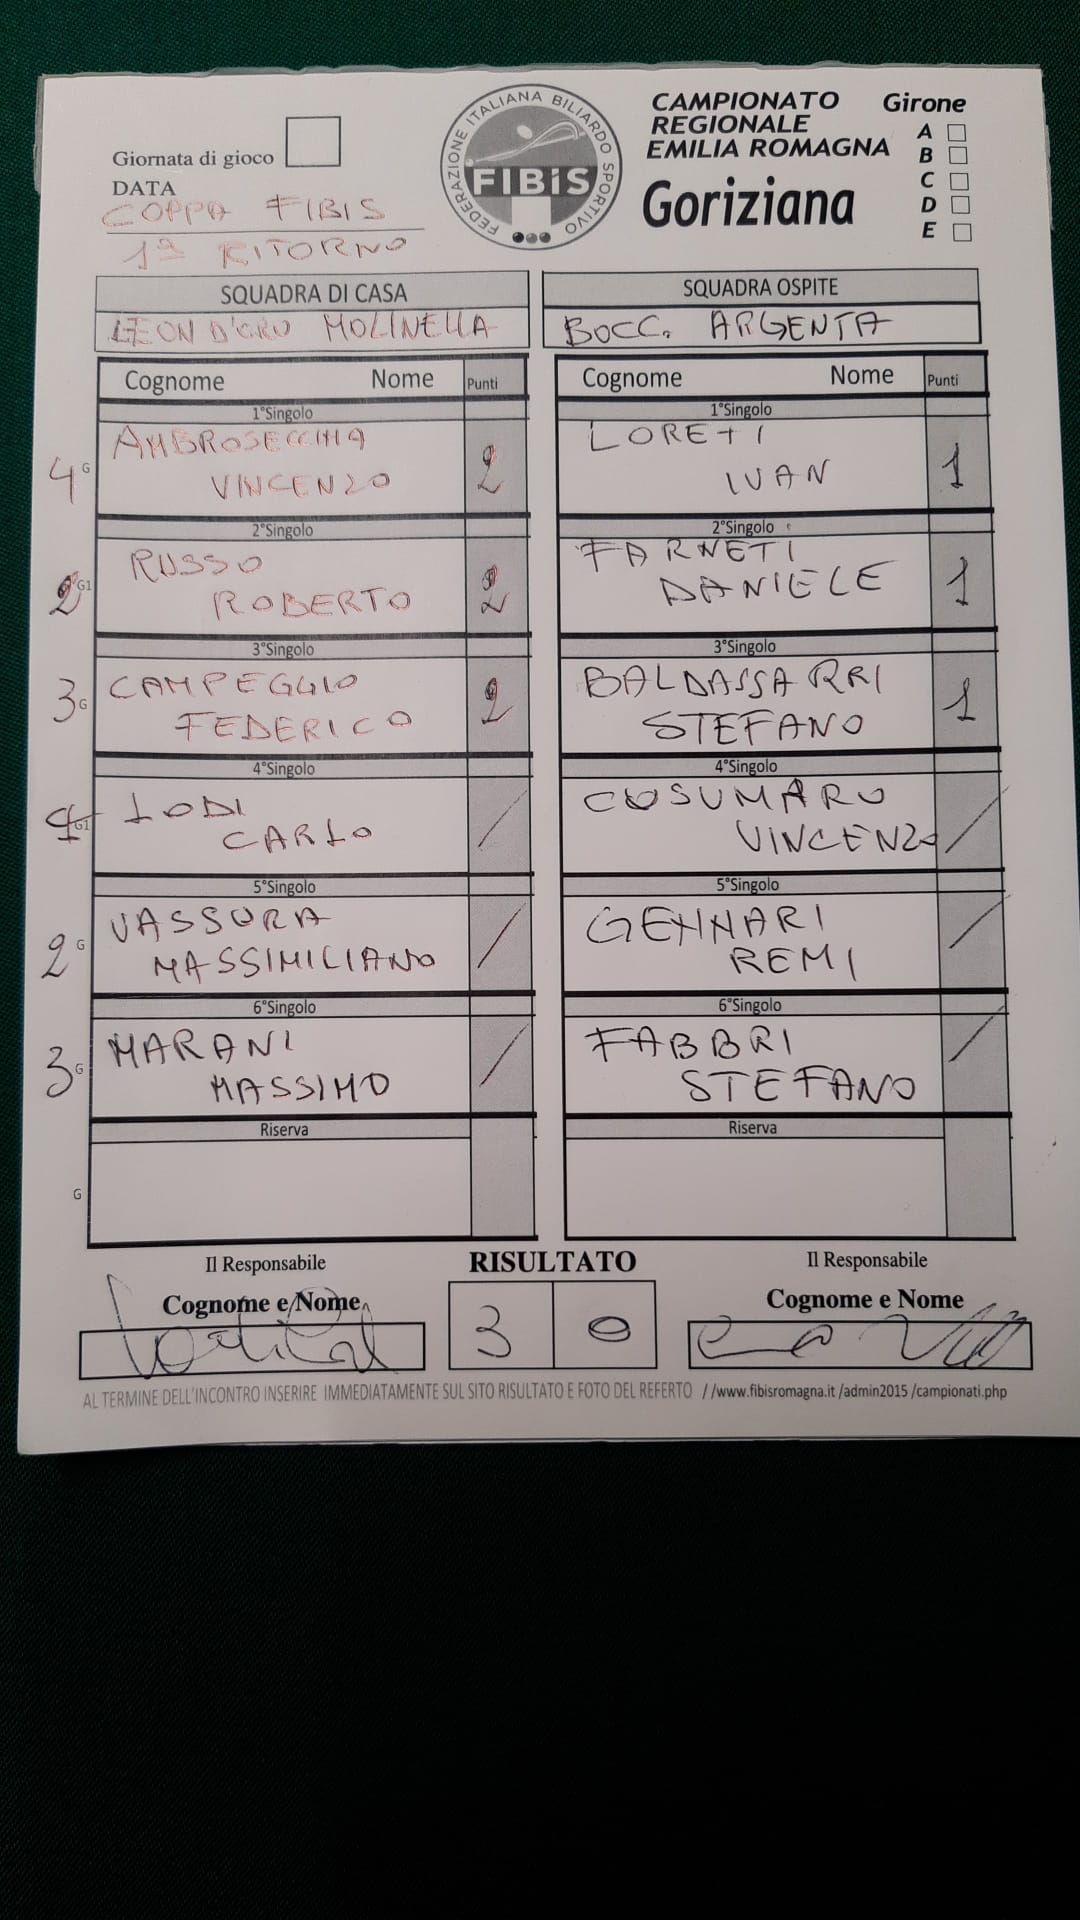 Giornata di gioco
DATA
COPPA FIBIS
1ª RITORNO
FEDERAZIONE ITALIANA BILIARDO SPORTIVO
FIBiS
CAMPIONATO
REGIONALE
EMILIA ROMAGNA
Goriziana
Girone
A
B
C
D
E
SQUADRA DI CASA
LEON D'ORO MOLINELLA
SQUADRA OSPITE
BOCC. ARGENTA
Cognome Nome Punti
Cognome Nome Punti
1°Singolo
1°Singolo
4 G
AMBROSECCHIA
VINCENZO
2
LORETI
IVAN
1
2°Singolo
2°Singolo
2 G1
RUSSO
ROBERTO
2
FARNETI
DANIELE
1
3°Singolo
3°Singolo
3 G
CAMPEGGIO
FEDERICO
2
BALDASSARRI
STEFANO
1
4°Singolo
4°Singolo
4 G1
LODI
CARLO
/
COSUMARO
VINCENZO
/
5°Singolo
5°Singolo
2 G
VASSURA
MASSIMILIANO
/
GENNARI
REMI
/
6°Singolo
6°Singolo
3 G
MARANI
MASSIMO
/
FABBRI
STEFANO
/
Riserva
Riserva
G
Il Responsabile
Cognome e Nome
RISULTATO
3 0
Il Responsabile
Cognome e Nome
AL TERMINE DELL'INCONTRO INSERIRE IMMEDIATAMENTE SUL SITO RISULTATO E FOTO DEL REFERTO //www.fibisromagna.it /admin2015 /campionati.php